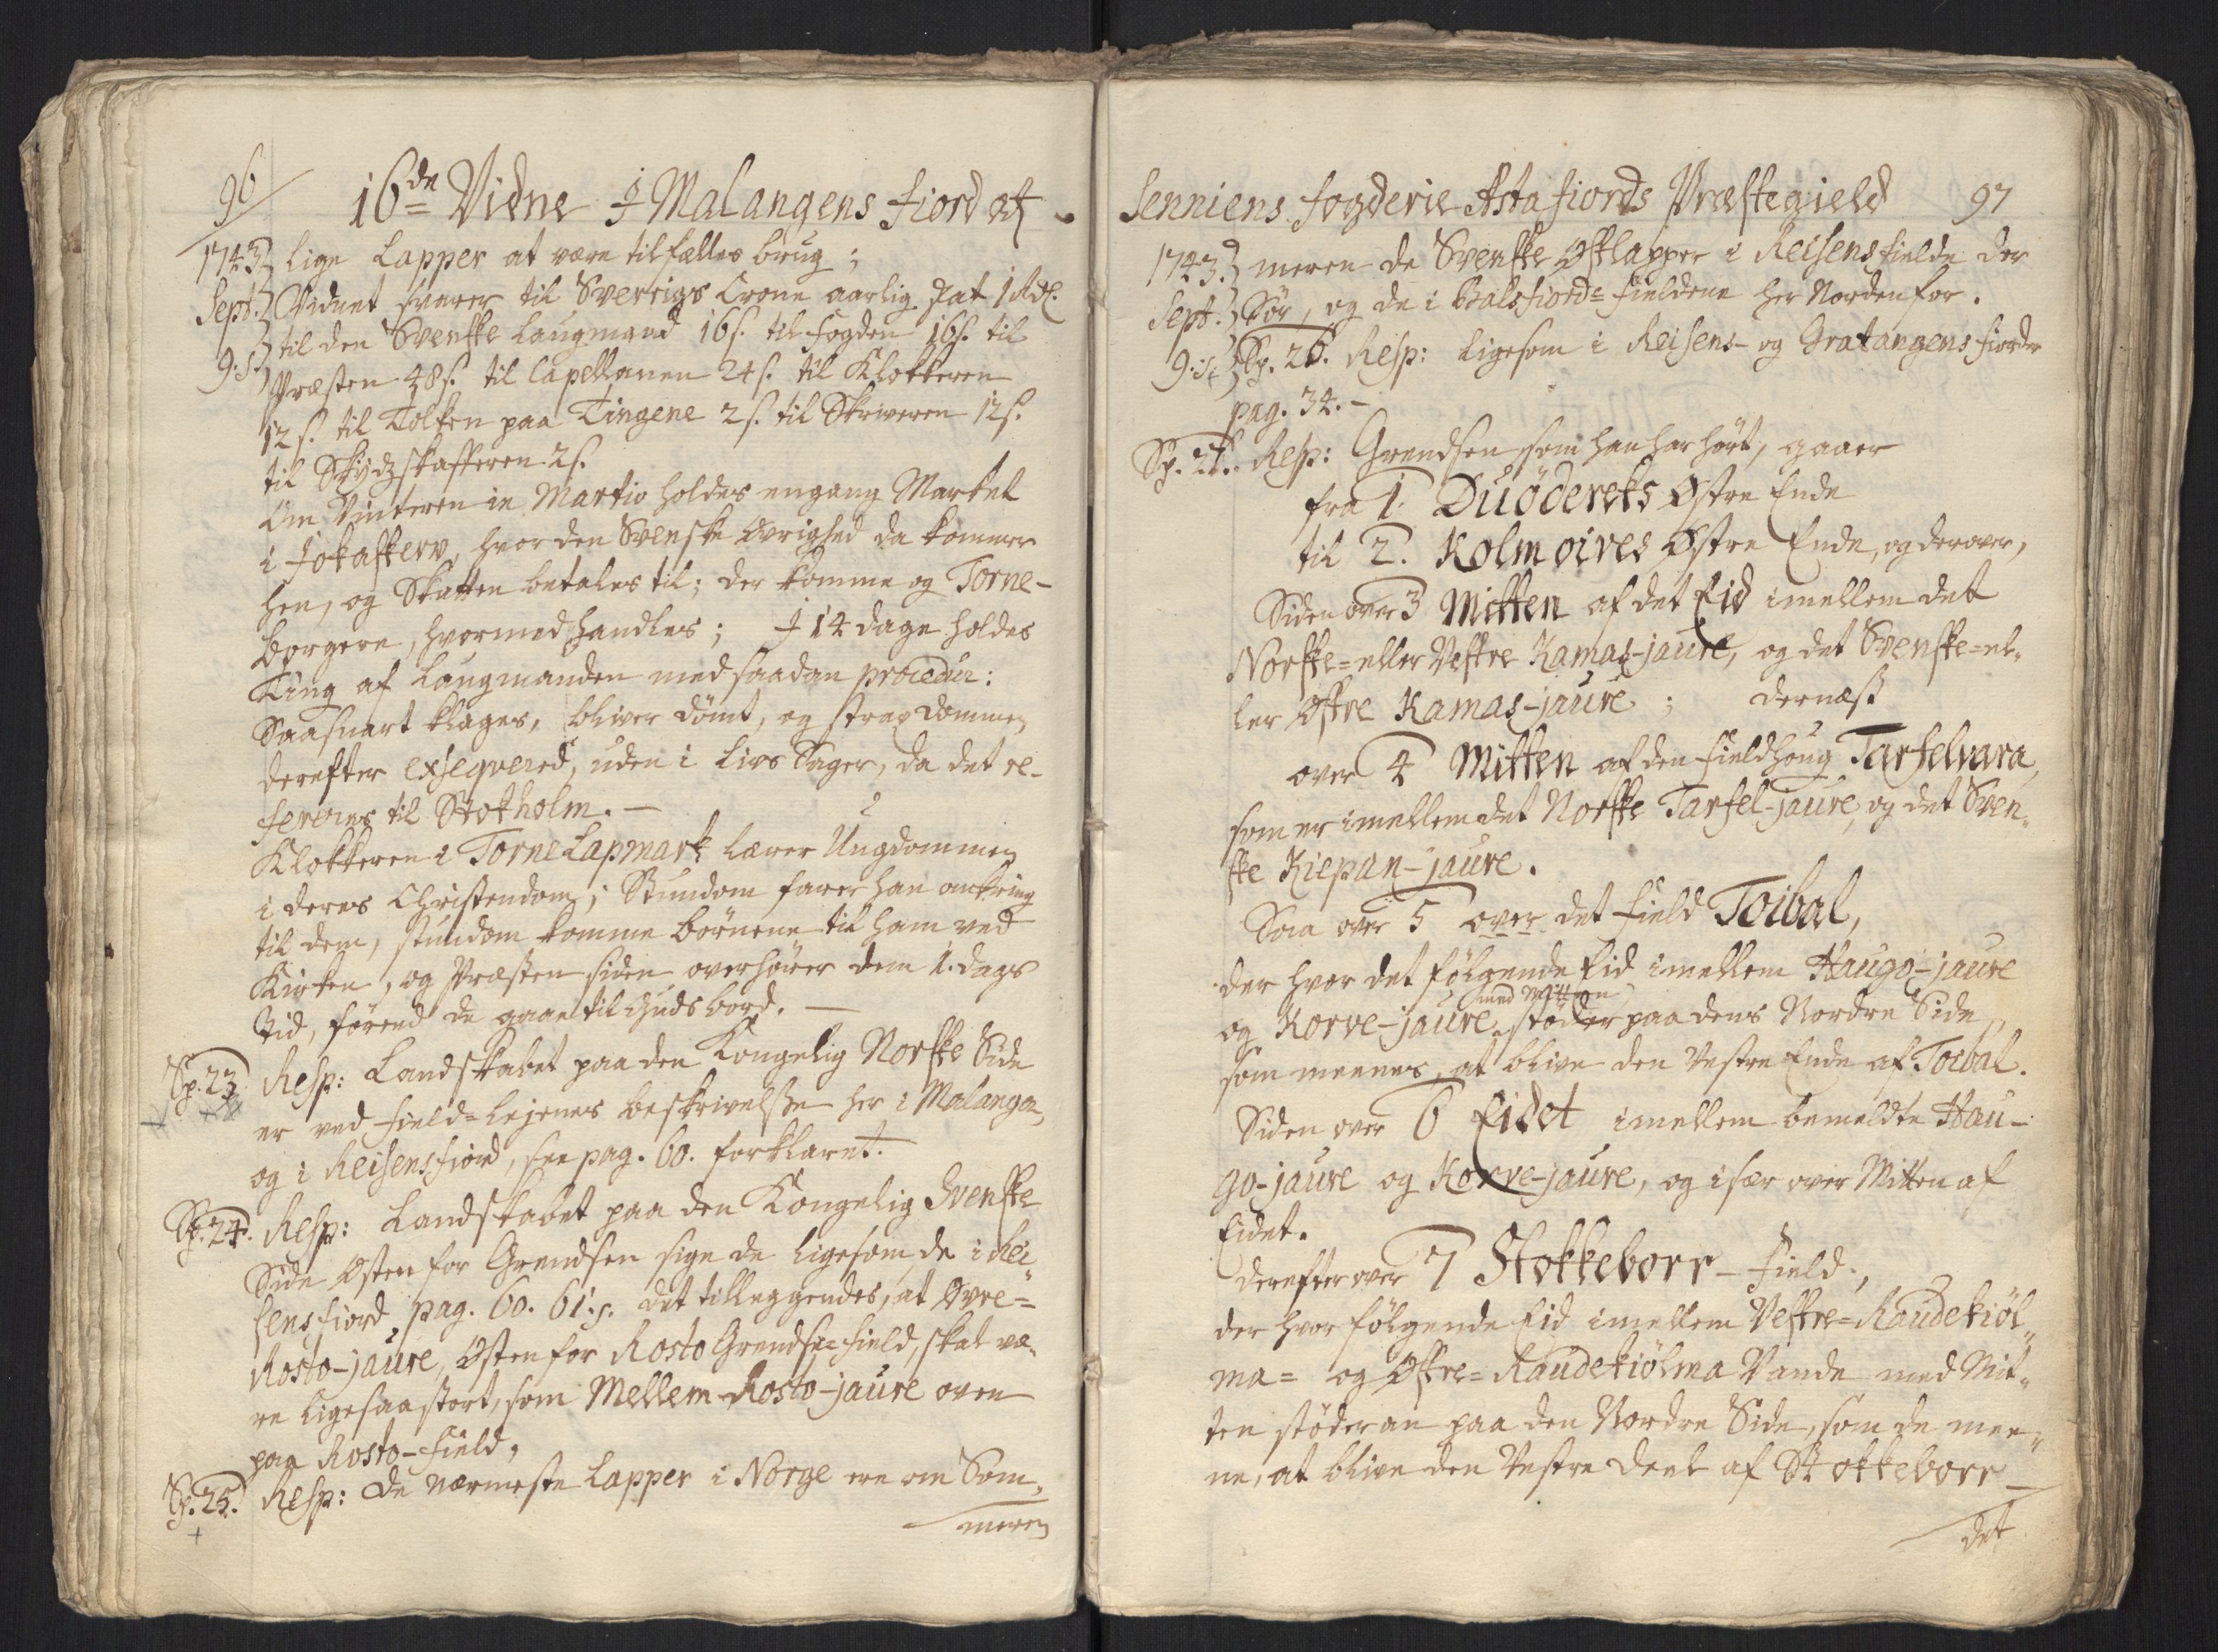 96
16de Vidne I Malangens Fiord af
1743 lige Lapper at være tilfælles brug;
Sept. Vidnet svarer til Sverrigs Crone aarlig Skat 1 Rdl.
9:s: til den Svenske Laugmand 16 s. til Fogden 16 s. til
Præsten 48 s. til Capellanen 24 s. til Klokkeren
12 s. til Tolken paa Tingene 2 s. til Skriveren 12 s.
til Skydzskafferen 2 s.
Om Vinteren in Martio holdes engang Market
i Jokaskerv, hvor den Svenske Øvrighed da kommer
hen, og Skatten betales til; der komme og Torne-
borgere, hvormed handles; I 14 dage holdes
Ting af Laugmanden med saadan procedur:
Saasnart klages, bliver dömt, og strax dommen
derefter exseqvered, uden i Livs Sager, da det re-
fereres til Stokholm. —
Klokkeren i TorneLapmark lærer Ungdommen
i deres Christendom; Stundom farer han omkring
til dem, stundom komme börnene til ham ved
Kirken, og Præsten siden overhörer dem 1. dags
Tid, förend de gaae til Guds bord. —
Sp. 23 Resp: Landskabet paa den Kongelig Norske Side
er ved Field-Lejenes beskrivelsse her i Malangen
og i Reisensfiord, see pag. 60. forklaret.
Sp. 24. Resp: Landskabet paa den Kongelig Svenske
Side Østen for Grendsen sige de ligesom de i Rei-
sensfiord pag. 60. 61. s. det tilleggendes, at Øvre-
Rosto-jaure, Østen for Rosto Grendse-field, skal væ-
re ligesaa stort, som Mellem-Rosto-jaure oven
paa Rosto-Field,
Sp. 25. Resp: De nærmeste Lapper i Norge ere om Som-
meren
Senniens Fogderie Astafiords Præstegield 97
1743. meren de Svenske Østlapper i Reisensfielde der
Sept. Sör, og de i Balsfiords-fieldene her Norden for.
9:s: Sp. 26. Resp: Ligesom i Reisens- og Gratangens fiorder
pag. 34. —
Sp. 27. Resp: Grendsen som han har hört, gaaer
fra 1. Duöderek's Østre Ende
til 2. Kolmoives Østre Ende, og derover,
Siden over 3 Mitten af det Eid imellem det
Norske- eller Vestre Kamas-jaure, og det Svenske- el-
ler Østre Kamas-jaure; dernæst
over 4 Mitten af den Fieldhoug Tarfelvara,
som er imellem det Norske Tarfel-jaure, og det Sven-
ske Kiepan-jaure.
Saa over 5 over det Field Toibal,
der hvor det fölgende Eid imellem Haugo-jaure
og Korve-jaure med Mitten stöder paa dens Nordre Side,
som meenes, at blive den Vestre Ende af Toibal.
Siden over 6 Eidet imellem bemeldte Hau-
go-jaure og Korve-jaure, og især over Mitten af
Eidet.
derefter over 7 Stokkeborr-Field,
der hvor fölgende Eid imellem Vestre-Raudekiöl-
ma- og Østre-Raudekiölma Vande med Mit-
ten stöder an paa den Nordre Side, som de mee-
ne, at blive den Vestre Deel af Stokkeborr-
det